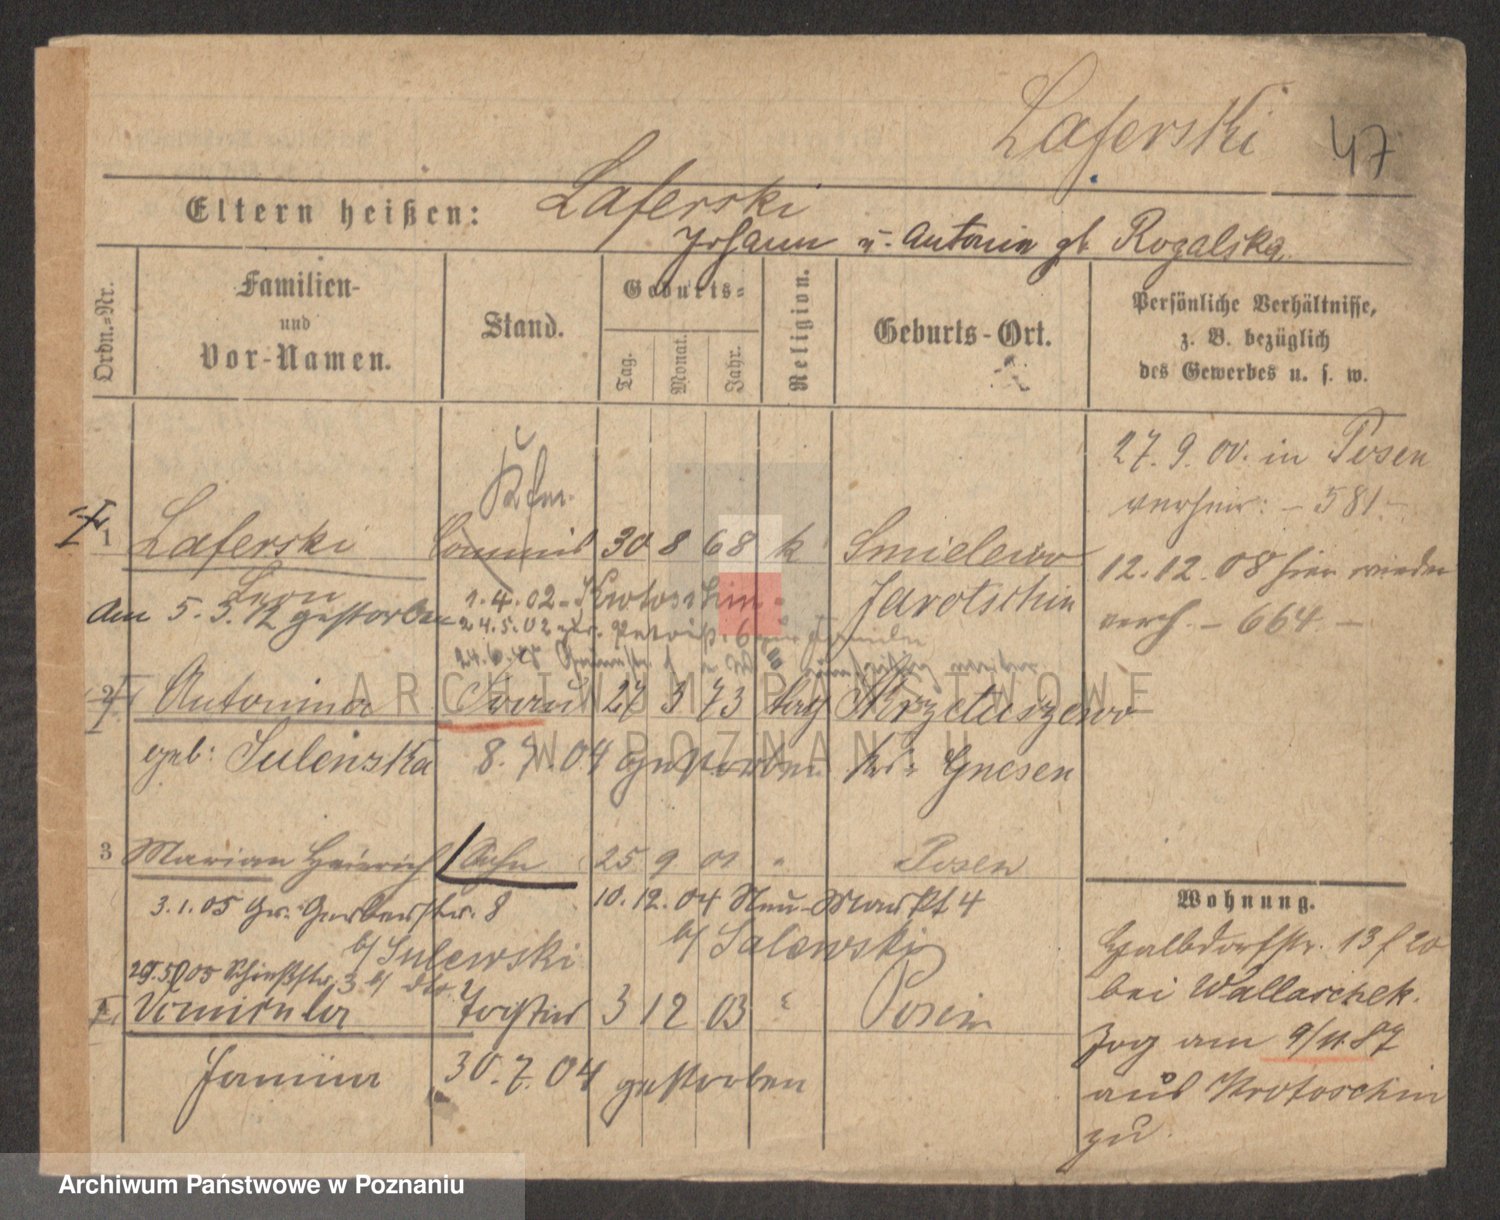 Laferski 47
Eltern heißen: Laferski
Johann u. Antonia gb. Rogalska.
Ordn.-Nr.
Familien-
und
Vor-Namen.
Stand.
Geburts-
Tag.
Monat.
Jahr.
Religion.
Geburts-Ort.
Persönliche Verhältnisse,
z. B. bezüglich
des Gewerbes u. s. w.
27. 9. 00. in Posen
verheir: - 581 -
12. 12. 08 hier wieder
verh. - 664. -
Kfm.
1 Laferski Commis 30 8 68 k Smielewo
Leon 1. 4. 02 - Krotoschin - Jarotschin
am 5. 3. 12 gestorben
24. 5. 02
2 Antonina Frau 27 3 73 kath Mrzetuszewo
geb: Sulenska 8. 7. 04 gestorben Kr: Gnesen
3 Marian Heinrich Sohn 25 9 01 " Posen
3. 1. 05 Gr. Gerberstr. 8 10. 12. 04 Neu-Markt 4
b/ Sulewski b/ Salewski
29. 5. 05 Schießstr. 3 b/ dto.
Tochter 3 12 03 " Posen
Janina 30. 7. 04 gestorben
Wohnung.
Halbdorfstr. 13 f 20
bei Wallaschek.
Zog am 9/11. 87
aus Krotoschin
zu.
ARCHIWUM PAŃSTWOWE
W POZNANIU
Archiwum Państwowe w Poznaniu